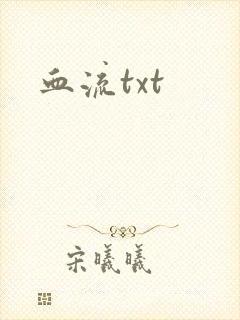 血流txt
宋曦曦